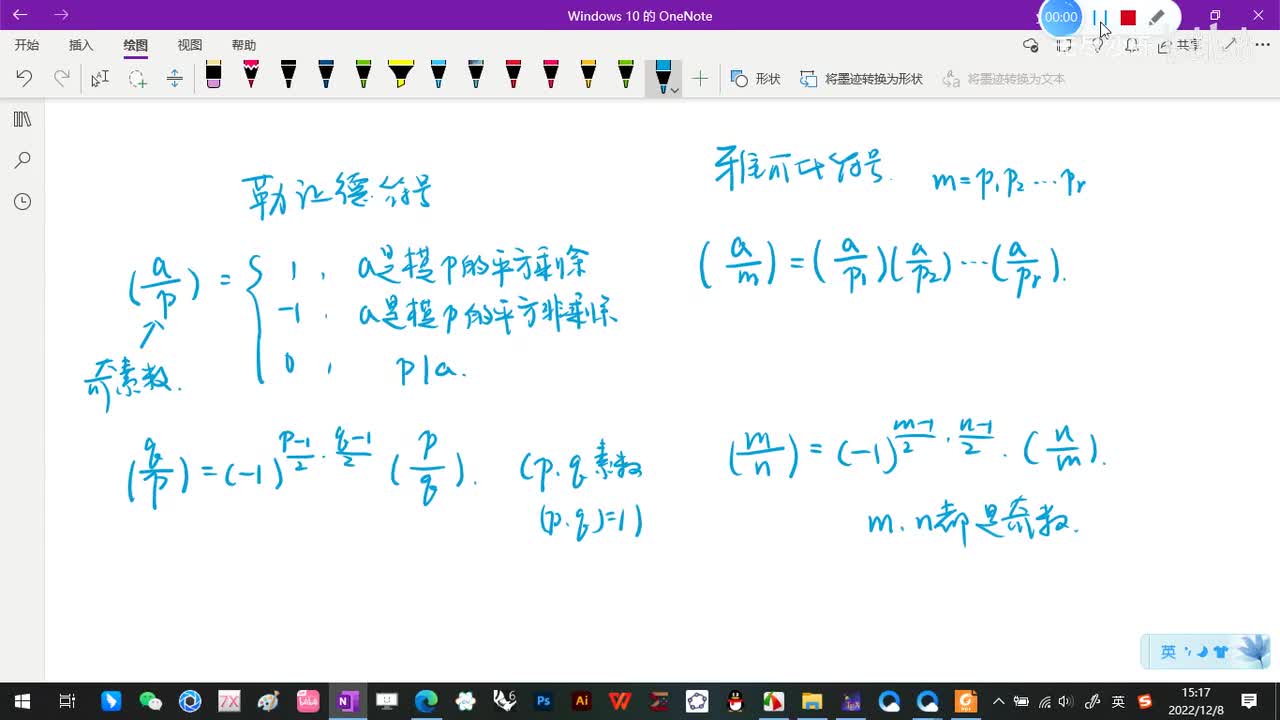 Windows 10 的 OneNote
00:00
开始 插入 绘图 视图 帮助
共享
形状 将墨迹转换为形状 将墨迹转换为文本
勒让德符号
(a/p) = { 1, a是模p的平方剩余
-1, a是模p的平方非剩余
0, p|a.
奇素数.
(q/p) = (-1)^{(p-1)/2 · (q-1)/2} (p/q). (p, q素数
(p, q)=1)
雅可比符号 m = p₁p₂⋯pᵣ
(a/m) = (a/p₁)(a/p₂)⋯(a/pᵣ).
(m/n) = (-1)^{(m-1)/2 · (n-1)/2} · (n/m).
m, n都是奇数.
英
7X
Ps
Ai
英
15:17
2022/12/8